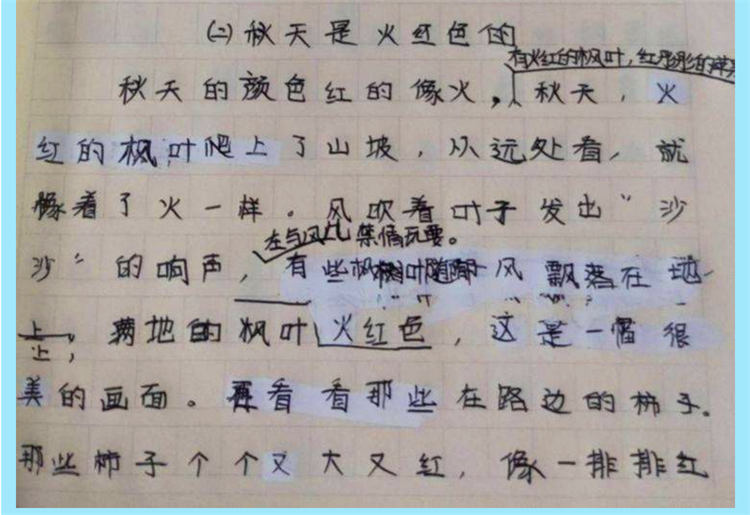 (二)秋天是火红色的
有火红的枫叶,红彤彤的
秋天的颜色红的像火,秋天,火
红的枫叶爬上了山坡,从远处看,就
像着了火一样。风吹着叶子发出“沙
在与风儿尽情玩耍。
沙”的响声,有些枫树叶随风飘落在地
上,满地的枫叶火红色,这是一幅很
美的画面。再看看那些在路边的柿子。
那些柿子个个又大又红,像一排排红